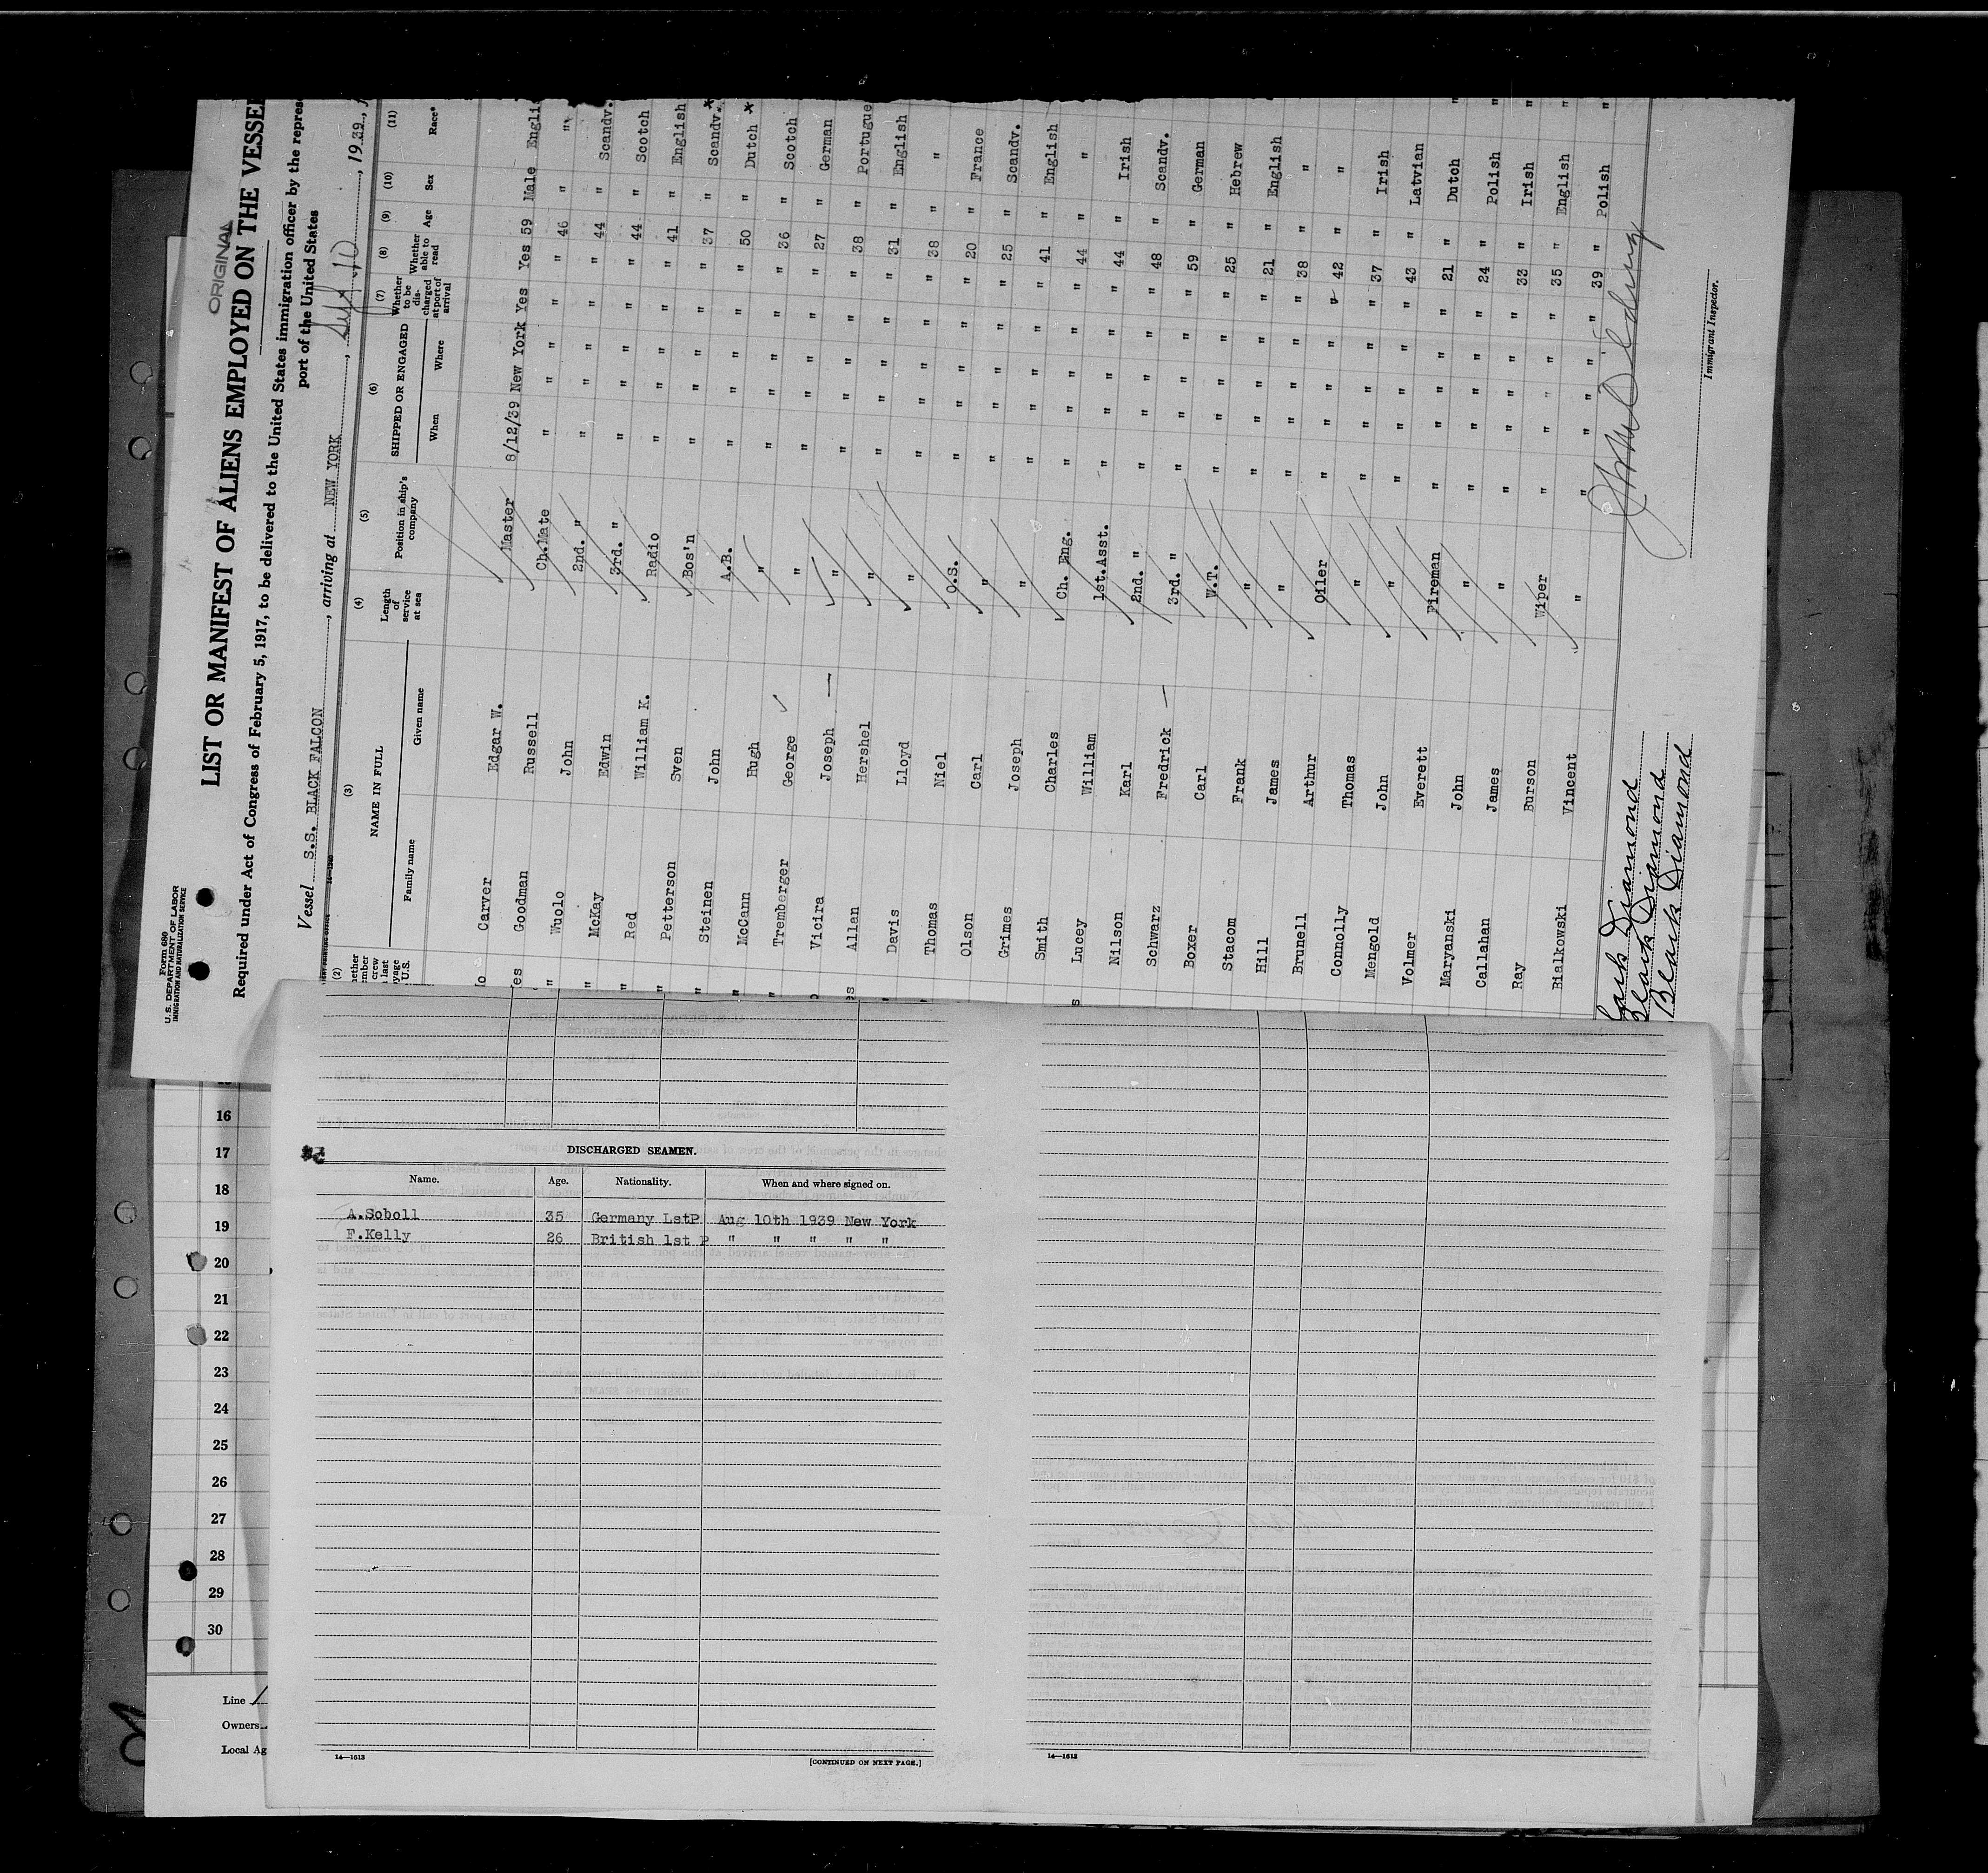 Form 680
U. S. DEPARTMENT OF LABOR
IMMIGRATION AND NATURALIZATION SERVICE
ORIGINAL
LIST OR MANIFEST OF ALIENS EMPLOYED ON THE VESSEL
Required under Act of Congress of February 5, 1917, to be delivered to the United States immigration officer by the
port of the United States
Vessel S.S. BLACK FALCON, arriving at NEW YORK, Sept 10, 1939,
(2) (3) (4) (5) (6) (7) (8) (9) (10) (11)
NAME IN FULL Length of service at sea Position in ship's company SHIPPED OR ENGAGED Whether to be discharged at port of arrival Whether able to read Age Sex Race*
Family name Given name When Where
Carver Edgar W. Master 8/12/39 New York Yes Yes 59 Male
Goodman Russell Ch.Mate " " " " 46 " "
Wuolo John 2nd. " " " " " 44 " Scandv.
McKay Edwin 3rd. " " " " " 44 " Scotch
Red William K. Radio " " " " 41 " English
Petterson Sven Bos'n " " " " 37 " Scandv.
Steinen John A.B. " " " " 50 " Dutch
McCann Hugh " " " " " 36 " Scotch
Tremberger George " " " " " 27 " German
Vicira Joseph " " " " " 38 " Portugue
Allan Hershel " " " " " 31 " English
Davis Lloyd " " " " " 38 " "
Thomas Niel O.S. " " " " 20 " France
Olson Carl " " " " " 25 " Scandv.
Grimes Joseph " " " " " 41 " English
Smith Charles Ch. Eng. " " " " 44 " "
Lucey William 1st.Asst. " " " " 44 " Irish
Nilson Karl 2nd. " " " " " 48 " Scandv.
Schwarz Fredrick 3rd. " " " " " 59 " German
Boxer Carl W.T. " " " " 25 " Hebrew
Stacom Frank " " " " " 21 " English
Hill James " " " " " 38 " "
Brunell Arthur Oiler " " " " 42 " "
Connolly Thomas " " " " " 37 " Irish
Mengold John " " " " " 43 " Latvian
Volmer Everett Fireman " " " " 21 " Dutch
Maryanski John " " " " " 24 " Polish
Callahan James " " " " " 33 " Irish
Ray Burson Wiper " " " " 35 " English
Bialkowski Vincent " " " " " 39 " Polish
Diamond
Black Diamond
Black Diamond
Immigrant Inspector.
16
17
18
19
20
21
22
23
24
25
26
27
28
29
30
Line
Owners
Local Ag
DISCHARGED SEAMEN.
Name. Age. Nationality. When and where signed on.
A.Soboll 35 Germany LstP Aug 10th 1939 New York
F.Kelly 26 British 1st P " " " " "
14—1613
[CONTINUED ON NEXT PAGE.]
14—1613